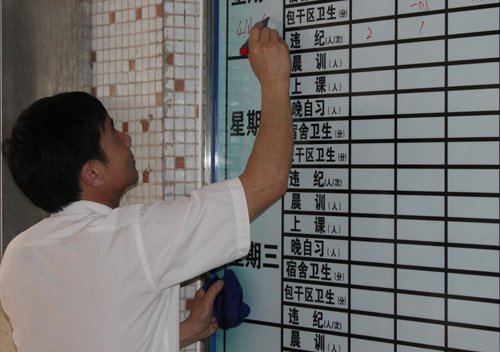 -0.5
包干区卫生(分)
违 纪(人/次) 2 1
晨 训(人)
上 课(人)
晚自习(人)
星期
宿舍卫生(分)
包干区卫生(分)
违 纪(人/次)
晨 训(人)
上 课(人)
晚自习(人)
期三
宿舍卫生(分)
包干区卫生(分)
违 纪(人/次)
晨 训(人)